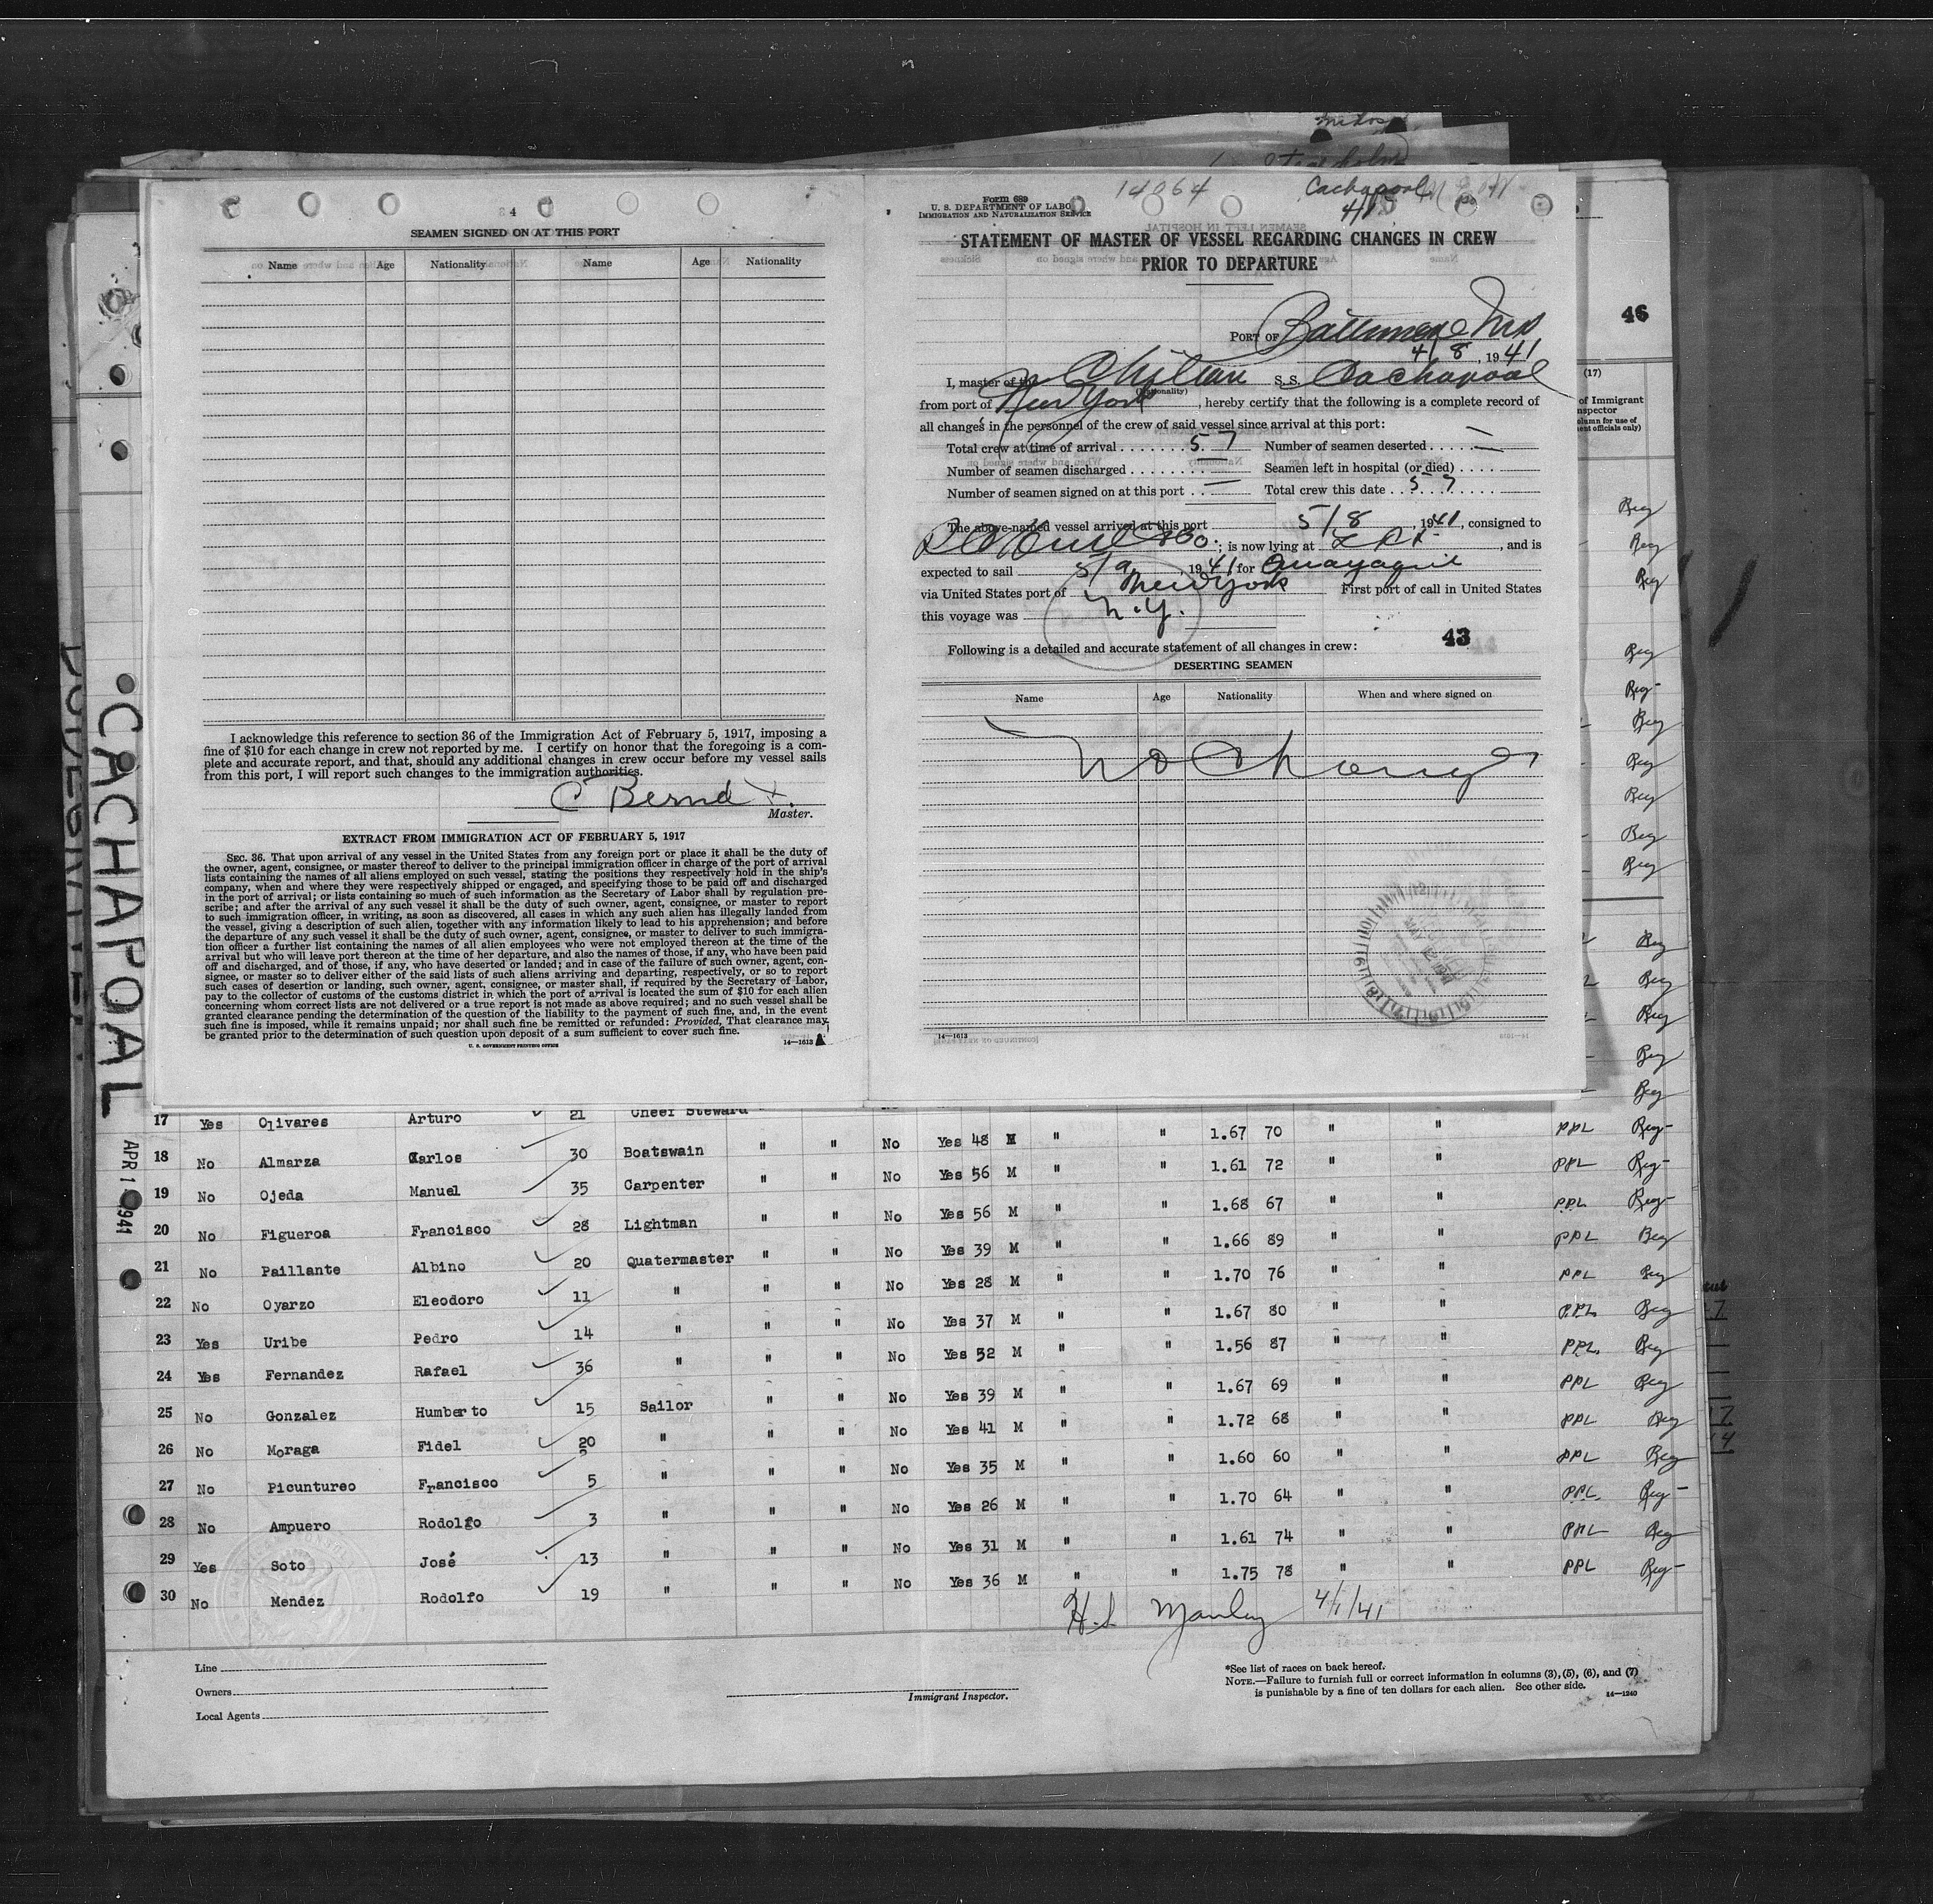 34
SEAMEN SIGNED ON AT THIS PORT
Name Age Nationality Name Age Nationality
I acknowledge this reference to section 36 of the Immigration Act of February 5, 1917, imposing a
fine of $10 for each change in crew not reported by me. I certify on honor that the foregoing is a com-
plete and accurate report, and that, should any additional changes in crew occur before my vessel sails
from this port, I will report such changes to the immigration authorities.
C Bernd
Master.
EXTRACT FROM IMMIGRATION ACT OF FEBRUARY 5, 1917
SEC. 36. That upon arrival of any vessel in the United States from any foreign port or place it shall be the duty of
the owner, agent, consignee, or master thereof to deliver to the principal immigration officer in charge of the port of arrival
lists containing the names of all aliens employed on such vessel, stating the positions they respectively hold in the ship's
company, when and where they were respectively shipped or engaged, and specifying those to be paid off and discharged
in the port of arrival; or lists containing so much of such information as the Secretary of Labor shall by regulation pre-
scribe; and after the arrival of any such vessel it shall be the duty of such owner, agent, consignee, or master to report
to such immigration officer, in writing, as soon as discovered, all cases in which any such alien has illegally landed from
the vessel, giving a description of such alien, together with any information likely to lead to his apprehension; and before
the departure of any such vessel it shall be the duty of such owner, agent, consignee, or master to deliver to such immigra-
tion officer a further list containing the names of all alien employees who were not employed thereon at the time of the
arrival but who will leave port thereon at the time of her departure, and also the names of those, if any, who have been paid
off and discharged, and of those, if any, who have deserted or landed; and in case of the failure of such owner, agent, con-
signee, or master so to deliver either of the said lists of such aliens arriving and departing, respectively, or so to report
such cases of desertion or landing, such owner, agent, consignee, or master shall, if required by the Secretary of Labor,
pay to the collector of customs of the customs district in which the port of arrival is located the sum of $10 for each alien
concerning whom correct lists are not delivered or a true report is not made as above required; and no such vessel shall be
granted clearance pending the determination of the question of the liability to the payment of such fine, and, in the event
such fine is imposed, while it remains unpaid; nor shall such fine be remitted or refunded: Provided, That clearance may
be granted prior to the determination of such question upon deposit of a sum sufficient to cover such fine.
U. S. GOVERNMENT PRINTING OFFICE 14—1613
14064 Cachapoal
Form 689
U. S. DEPARTMENT OF LABOR
IMMIGRATION AND NATURALIZATION SERVICE
STATEMENT OF MASTER OF VESSEL REGARDING CHANGES IN CREW
PRIOR TO DEPARTURE
PORT OF Baltimore Md
4/8, 1941
I, master of the Chilean S. S. Cachapoal
(Nationality)
from port of New York, hereby certify that the following is a complete record of
all changes in the personnel of the crew of said vessel since arrival at this port:
Total crew at time of arrival 57 Number of seamen deserted —
Number of seamen discharged — Seamen left in hospital (or died)
Number of seamen signed on at this port — Total crew this date 57
The above-named vessel arrived at this port 5/8, 1941, consigned to
; is now lying at, and is
expected to sail 5/9, 1941 for Guayaquil
via United States port of New York First port of call in United States
this voyage was N.Y.
Following is a detailed and accurate statement of all changes in crew: 43
DESERTING SEAMEN
Name Age Nationality When and where signed on
No Change
14—1613
46
(17)
of Immigrant
nspector
olumn for use of
ent officials only)
CACHAPOAL
APR 1 1941
17 Yes Olivares Arturo 21 Cheef Steward
18 No Almarza Carlos 30 Boatswain " " No Yes 48 M " " 1.67 70 " " PPL Reg
19 No Ojeda Manuel 35 Carpenter " " No Yes 56 M " " 1.61 72 " " PPL Reg
20 No Figueroa Francisco 28 Lightman " " No Yes 56 M " " 1.68 67 " " PPL Reg
21 No Paillante Albino 20 Quatermaster " " No Yes 39 M " " 1.66 89 " " PPL Reg
22 No Oyarzo Eleodoro 11 " " " No Yes 28 M " " 1.70 76 " " PPL Reg
23 Yes Uribe Pedro 14 " " " No Yes 37 M " " 1.67 80 " " PPL Reg
24 Yes Fernandez Rafael 36 " " " No Yes 52 M " " 1.56 87 " " PPL Reg
25 No Gonzalez Humberto 15 Sailor " " No Yes 39 M " " 1.67 69 " " PPL Reg
26 No Moraga Fidel 20 " " " No Yes 41 M " " 1.72 68 " " PPL Reg
27 No Picuntureo Francisco 5 " " " No Yes 35 M " " 1.60 60 " " PPL Reg
28 No Ampuero Rodolfo 3 " " " No Yes 26 M " " 1.70 64 " " PPL Reg
29 Yes Soto José 13 " " " No Yes 31 M " " 1.61 74 " " PPL Reg
30 No Mendez Rodolfo 19 " " " No Yes 36 M " " 1.75 78 " " PPL Reg
H.S. Manley 4/1/41
Line
Owners
Local Agents
Immigrant Inspector.
*See list of races on back hereof.
NOTE.—Failure to furnish full or correct information in columns (3), (5), (6), and (7)
is punishable by a fine of ten dollars for each alien. See other side. 14—1240